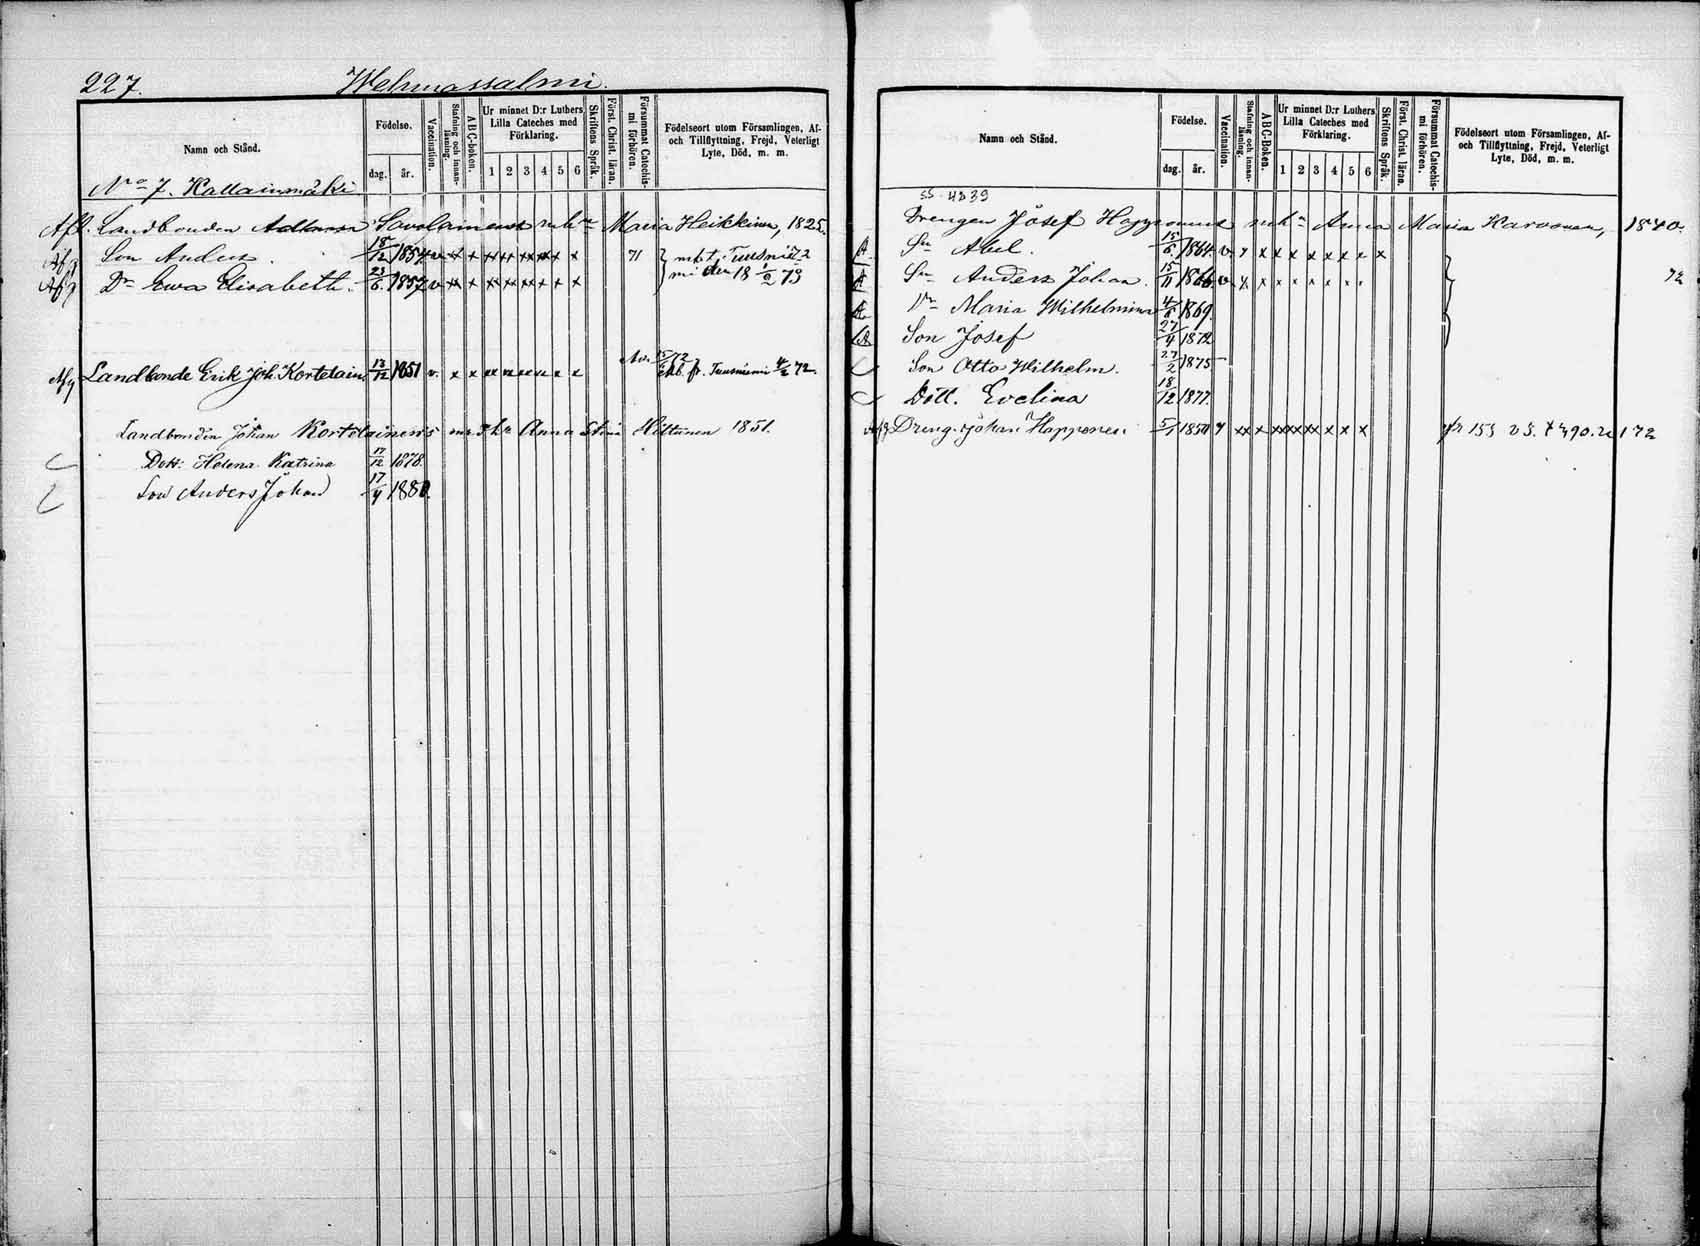 227.
Wehmassalmi.
Namn och Stånd.
Födelse.
dag. år.
Vaccination.
Stafning och innanläsning.
ABC-boken.
Ur minnet D:r Luthers Lilla Cateches med Förklaring.
1 2 3 4 5 6
Skriftens Språk.
Först. Christ. läran.
Försummat Catechismi förhören.
Födelseort utom Församlingen, Af- och Tillflyttning, Frejd, Veterligt Lyte, Död, m. m.
No 7. Kallainmäki
Afl. Landbonden Savolainens enka Maria Heikkinen, 1825.
Son Anders. 18/12 1854 v x x x x x x x x 71
Dr Ewa Elisabeth. 23/6 1857 v x x x x x x x x
18 1/2 73
Afg Landbonde Erik Joh. Kortelain 13/12 1851 v. x x x x x x x x fr. Tuusniemi 4/2 72.
Landbonden Johan Kortelainens Anna Stina Hiltunen 1851.
Dott. Helena Katrina 17/12 1878.
Son Anders Johan 17/4 1880.
Namn och Stånd.
Födelse.
dag. år.
Vaccination.
Stafning och innanläsning.
ABC-Boken.
Ur minnet D:r Luthers Lilla Cateches med Förklaring.
1 2 3 4 5 6
Skriftens Språk.
Först. Christ. läran.
Försummat Catechismi förhören.
Födelseort utom Församlingen, Af- och Tillflyttning, Frejd, Veterligt Lyte, Död, m. m.
Drengen Josef Happonens enka Anna Maria Karvonen, 1840.
A Sn Abel. 15/6 1864 v x x x x x x x x x
A Sn Anders Johan. 15/11 1866 v x x x x x x x x 72
A Dr Maria Wilhelmina 4/6 1869.
A Son Josef 27/4 1872
Son Otto Wilhelm. 27/2 1875
Dött. Evelina 18/12 1877.
Dreng. Johan Happonen 5/1 1850 x x x x x x x x 172